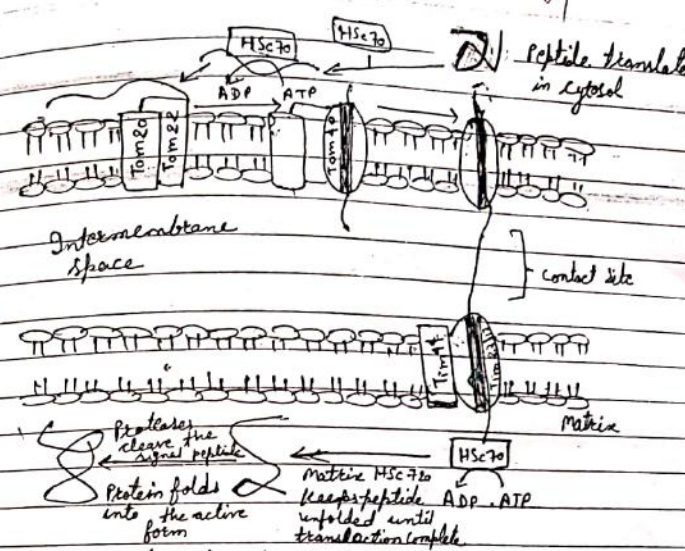 HSc70
HSc70
Peptide translate
in cytosol
ADP
ATP
Tom20
Tom22
Tom40
Intermembrane
Space
Contact Site
Tim44
Matrix
HSc70
ADP
ATP
Proteases
cleave the
signal peptide
Protein folds
into the active
form
Matrix HSc70
keeps peptide
unfolded until
translaction complete